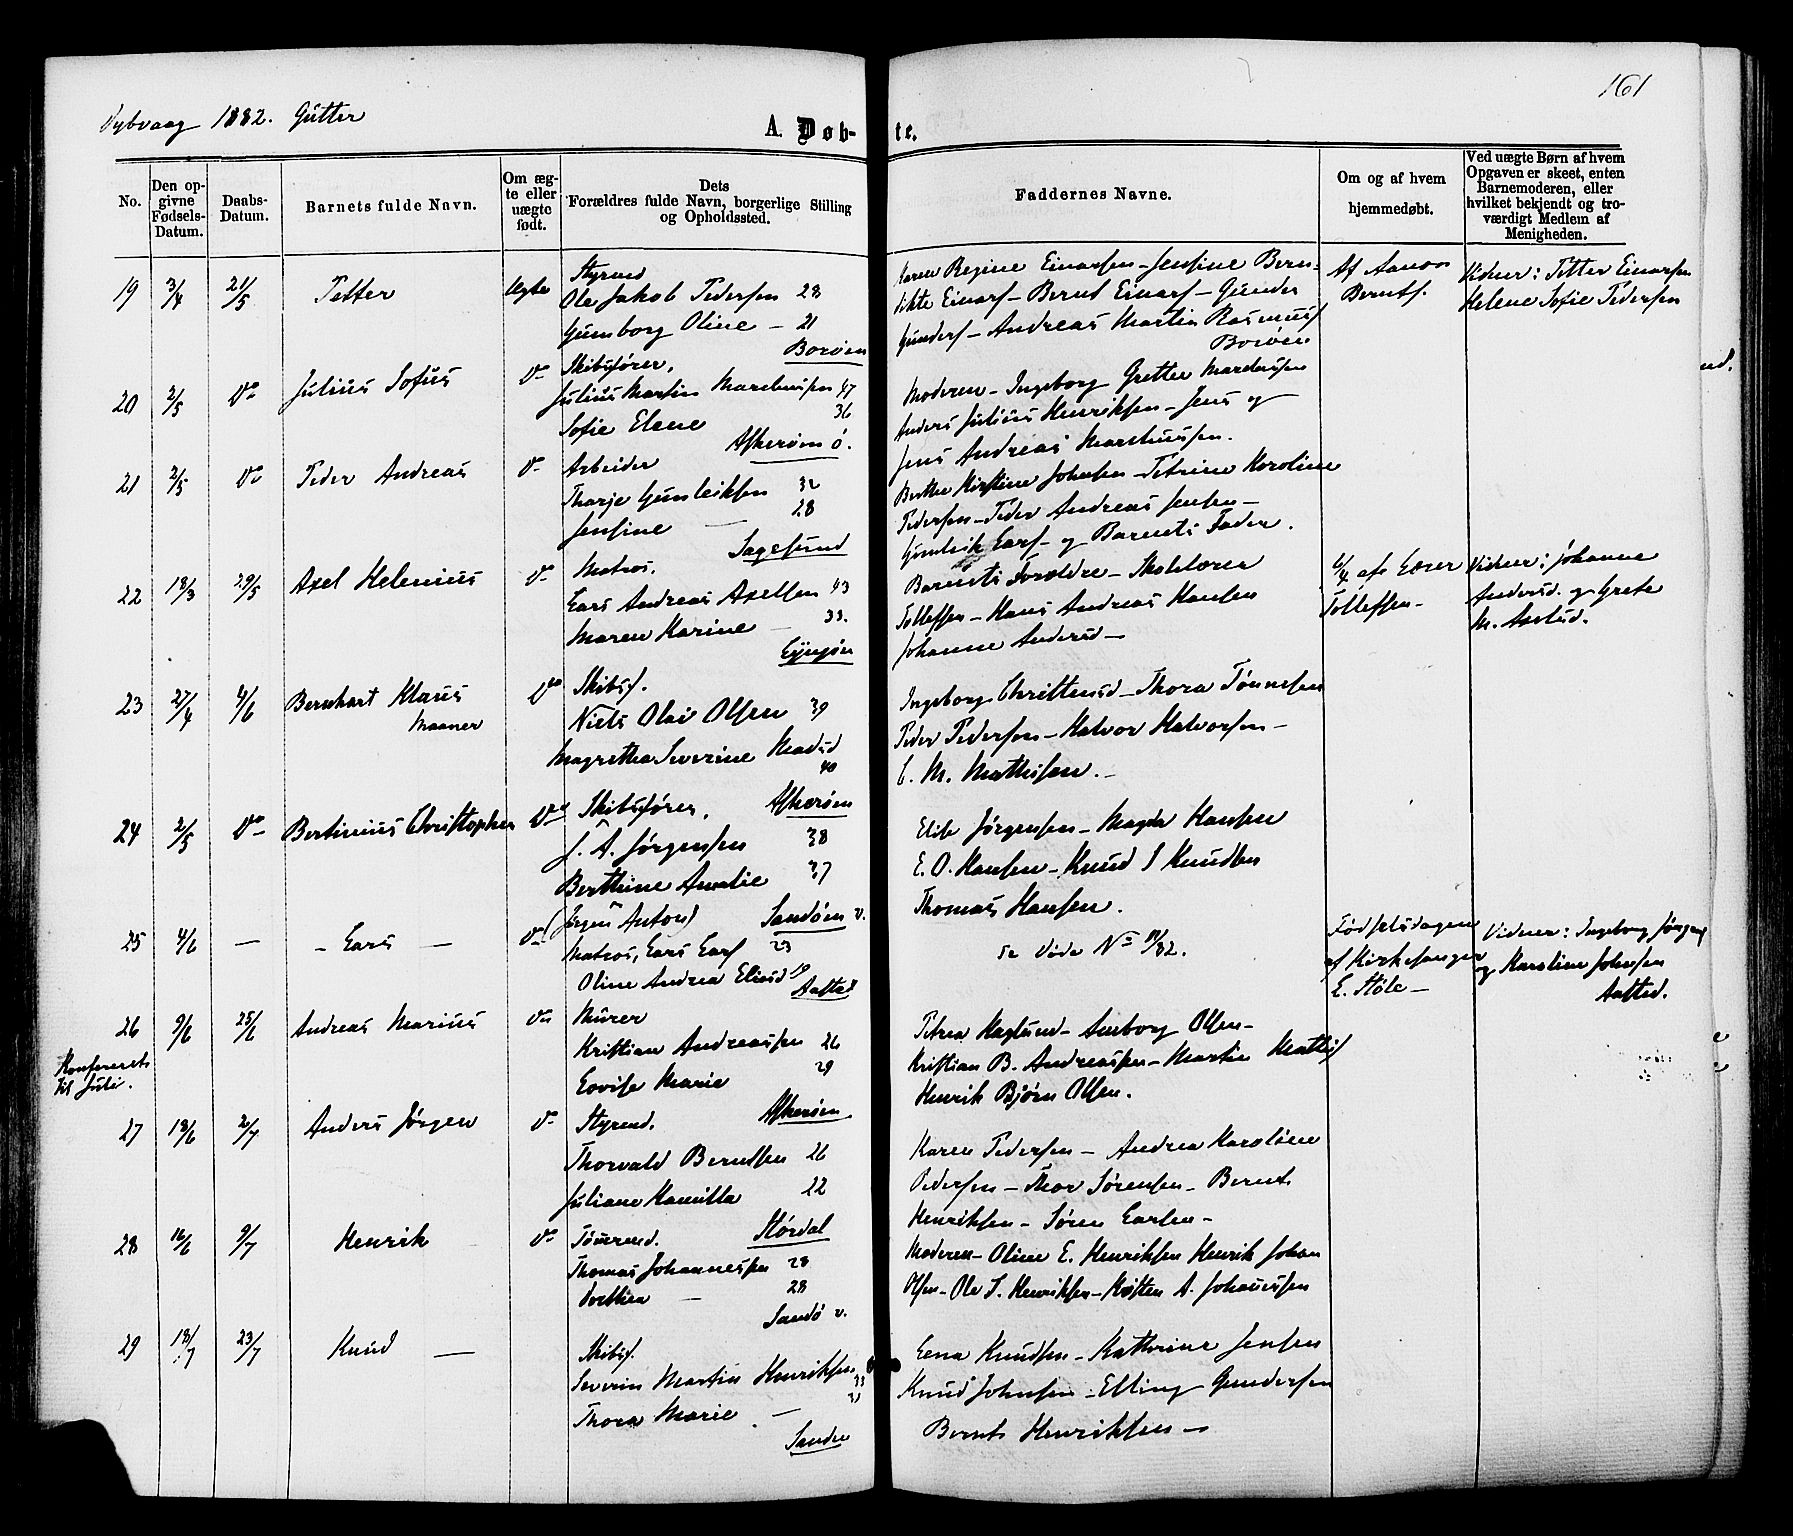 161
Dybvaag 1882. Gutter
A. Døbte.
No.
Den opgivne Fødsels-Datum.
Daabs-Datum.
Barnets fulde Navn.
Om ægte eller uægte født.
Dets Forældres fulde Navn, borgerlige Stilling og Opholdssted.
Faddernes Navne.
Om og af hvem hjemmedøbt.
Ved uægte Børn af hvem Opgaven er skeet, enten Barnemoderen, eller hvilket bekjendt og troværdigt Medlem af Menigheden.
19 3/4 21/5 Petter Ægte Styrmd
Ole Jakob Pedersen 28
Gunborg Oline — 21
Borøen
Karen Regine Einarsen - Jensine Bern-
dikte Einars - Bernt Einars - Gunder
Gunders - Andreas Martin Rasmus
Borøen
Af Aanon
Bernts.
Vidner: Petter Einarsen
Helene Sofie Pedersen
20 2/5 Do Julius Sofius Do Skibsfører,
Julius Martin Marthnusen 47
Sofie Elene 36
Askerøen ø.
Moderen - Ingeborg Grethe Marthnusen
Anders Julius Henriksen - Jens og
Jens Andreas Marthnusen.
21 2/5 Do Peder Andreas Do Arbeider
Tharje Gunleiksen 32
Jensine — 28
Sagesund
Berthe Kirstine Johnsen - Petrine Karoline
Pedersen - Peder Andreas Jensen -
Gunleik Lars - og Barnets Fader.
22 18/3 29/5 Axel Helenius Do Matros.
Lars Andreas Axelsen 43
Maren Karine — 33.
Lyngøn
Barnets Forældre - Skolelærer
Tollefsen - Hans Andreas Hansen
Johanne Andersd -
6/4 af Lærer
Tollefsen -
Vidner: Johanne
Andersd. og Grete
M. Axelsd.
23 27/4 4/6 Bernhart Klaus
Maaner
Do Skibsf.
Niels Olai Olsen 39
Magretha Severine Madsd
40
Askerøen
Ingeborg Christensd - Thora Tønnesen
Peder Pedersen - Halvor Halvorsen -
C. M. Mathisen. -
24 2/5 Do Bertinius Christopher Do Skibsfører,
J. A. Jørgensen 38
Berthine Amalie 37
(Jørgen Anton) Sandøen v.
Elise Jørgensen - Magda Hansen
E. O. Hansen - Knud I Knudsen
Thomas Hansen.
25 4/6 — - Lars — Do Matros, Lars Lars 23
Oline Andrea Eliasd 19
Aasted
se Døde No 11/82.
Fødselsdagen
af Kirkesanger
E. Støle -
Vidner: Ingeborg Jørgens
og Karoline Johnsen
Aasted.
26 9/6 25/6 Andreas Marius Do Murer
Kristian Andreassen 26
Lovise Marie 29
Askerøen
Petrea Haglund - Amborg Olsen -
Kristian B. Andreassen - Martin Mathis
Henrik Bjørn Olsen.
Konfereret
til Juli.
27 18/6 2/7 Anders Jørgen Do Styrmd.
Thorvald Berntsen 26
Juliane Kamilla 22
Stórdal
Karen Pedersen - Andrea Karoline
Pedersen - Thor Sørensen - Bernt
Henriksen - Søren Larsen -
28 16/6 9/7 Henrik Do Tømrmd.
Thomas Johannessen 28
Dorthea — 28
Sandø v.
Moderen - Oline E. Henriksen Henrik Johan
Olsen - Ole S. Henriksen - Kristen A. Johannessen
29 18/7 23/7 Knud — Skibsf.
Severin Martin Henriksen
33
Thora Marie —
Sandøen
Lena Knudsen - Kathrine Jensen
Knud Johnsen - Elling Gundersen
Bernt Henriksen -